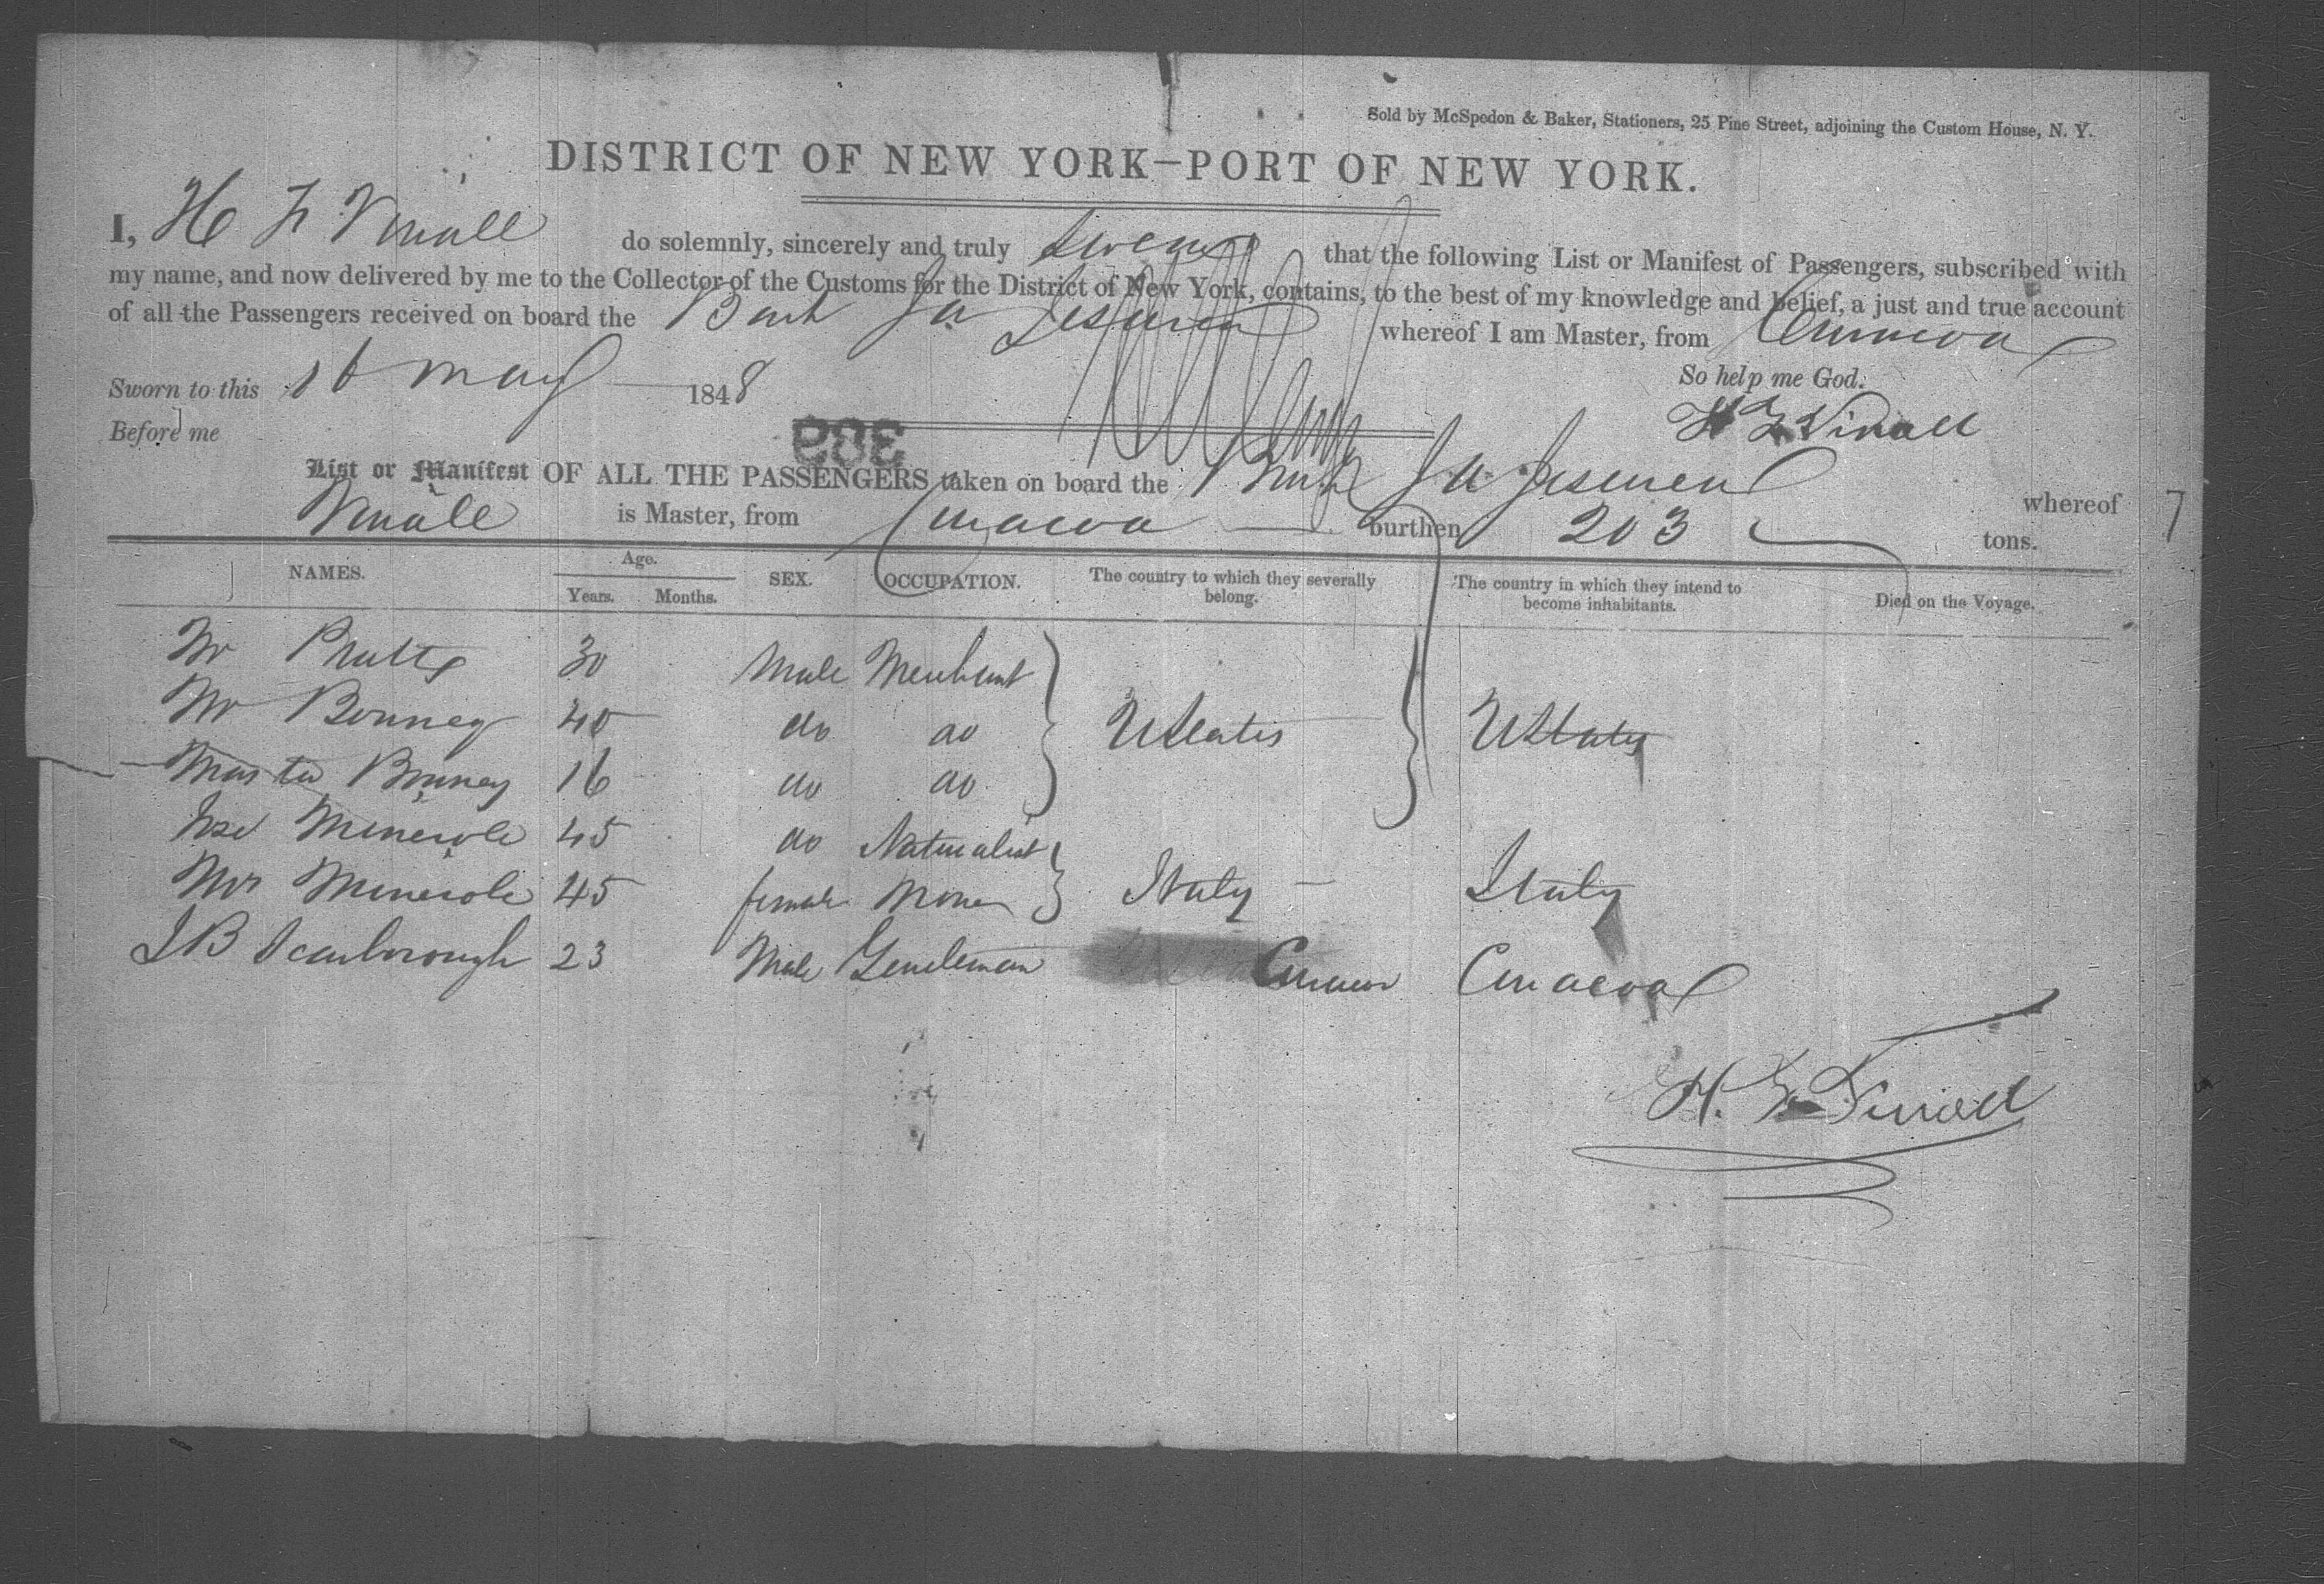 Sold by McSpedon & Baker, Stationers, 25 Pine Street, adjoining the Custom House, N. Y.
DISTRICT OF NEW YORK—PORT OF NEW YORK.
I, H F Vinall do solemnly, sincerely and truly swear that the following List or Manifest of Passengers, subscribed with
my name, and now delivered by me to the Collector of the Customs for the District of New York, contains, to the best of my knowledge and belief, a just and true account
of all the Passengers received on board the Bark whereof I am Master, from Curacoa
So help me God.
Sworn to this 16 May 1848
H F Vinall
Before me
309
List or Manifest OF ALL THE PASSENGERS taken on board the Bark whereof
Vinall is Master, from Curacoa burthen 203 tons.
NAMES. Age. Years. Months. SEX. OCCUPATION. The country to which they severally belong. The country in which they intend to become inhabitants. Died on the Voyage.
Mr 30 Male Merchant
Mr Bonney 40 do do UStates UStates
Master Bonney 16 do do
Minerole 45 do Naturalist
Mrs Minerole 45 female None Italy Italy
J B Scarborough 23 Male Gentleman Curacoa Curacoa
H. F. Vinall